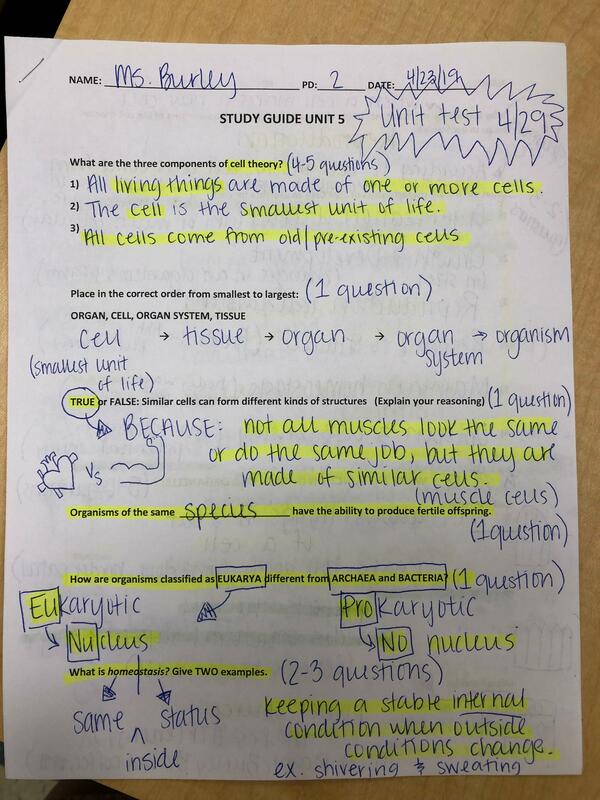 NAME: Ms. Burley PD: 2 DATE: 4/23/19
STUDY GUIDE UNIT 5
Unit test 4/29
What are the three components of cell theory? (4-5 questions)
1) All living things are made of one or more cells.
2) The cell is the smallest unit of life.
3) All cells come from old/pre-existing cells
Place in the correct order from smallest to largest: (1 question)
ORGAN, CELL, ORGAN SYSTEM, TISSUE
cell → tissue → organ → organ system → organism
(smallest unit
of life)
TRUE or FALSE: Similar cells can form different kinds of structures (Explain your reasoning) (1 question)
BECAUSE: not all muscles look the same
vs
or do the same job, but they are
made of similar cells.
(muscle cells)
Organisms of the same species have the ability to produce fertile offspring.
(1 question)
How are organisms classified as EUKARYA different from ARCHAEA and BACTERIA? (1 question)
Eukaryotic Prokaryotic
Nucleus NO nucleus
What is homeostasis? Give TWO examples. (2-3 questions)
same status
inside
Keeping a stable internal
condition when outside
conditions change.
ex. shivering & sweating